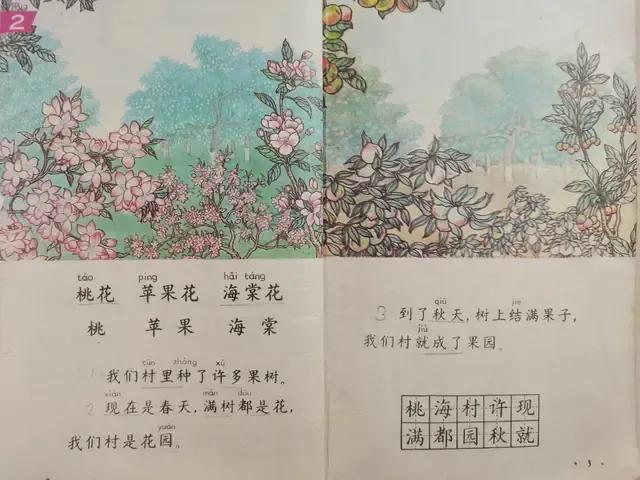 2
táo píng hǎi táng
桃花 苹果花 海棠花
桃 苹果 海棠
cūn zhǒng xǔ
1 我们村里种了许多果树。
xiàn mǎn dōu
2 现在是春天,满树都是花,
yuán
我们村是花园。
qiū jiē
3 到了秋天,树上结满果子,
jiù
我们村就成了果园。
桃海村许现
满都园秋就